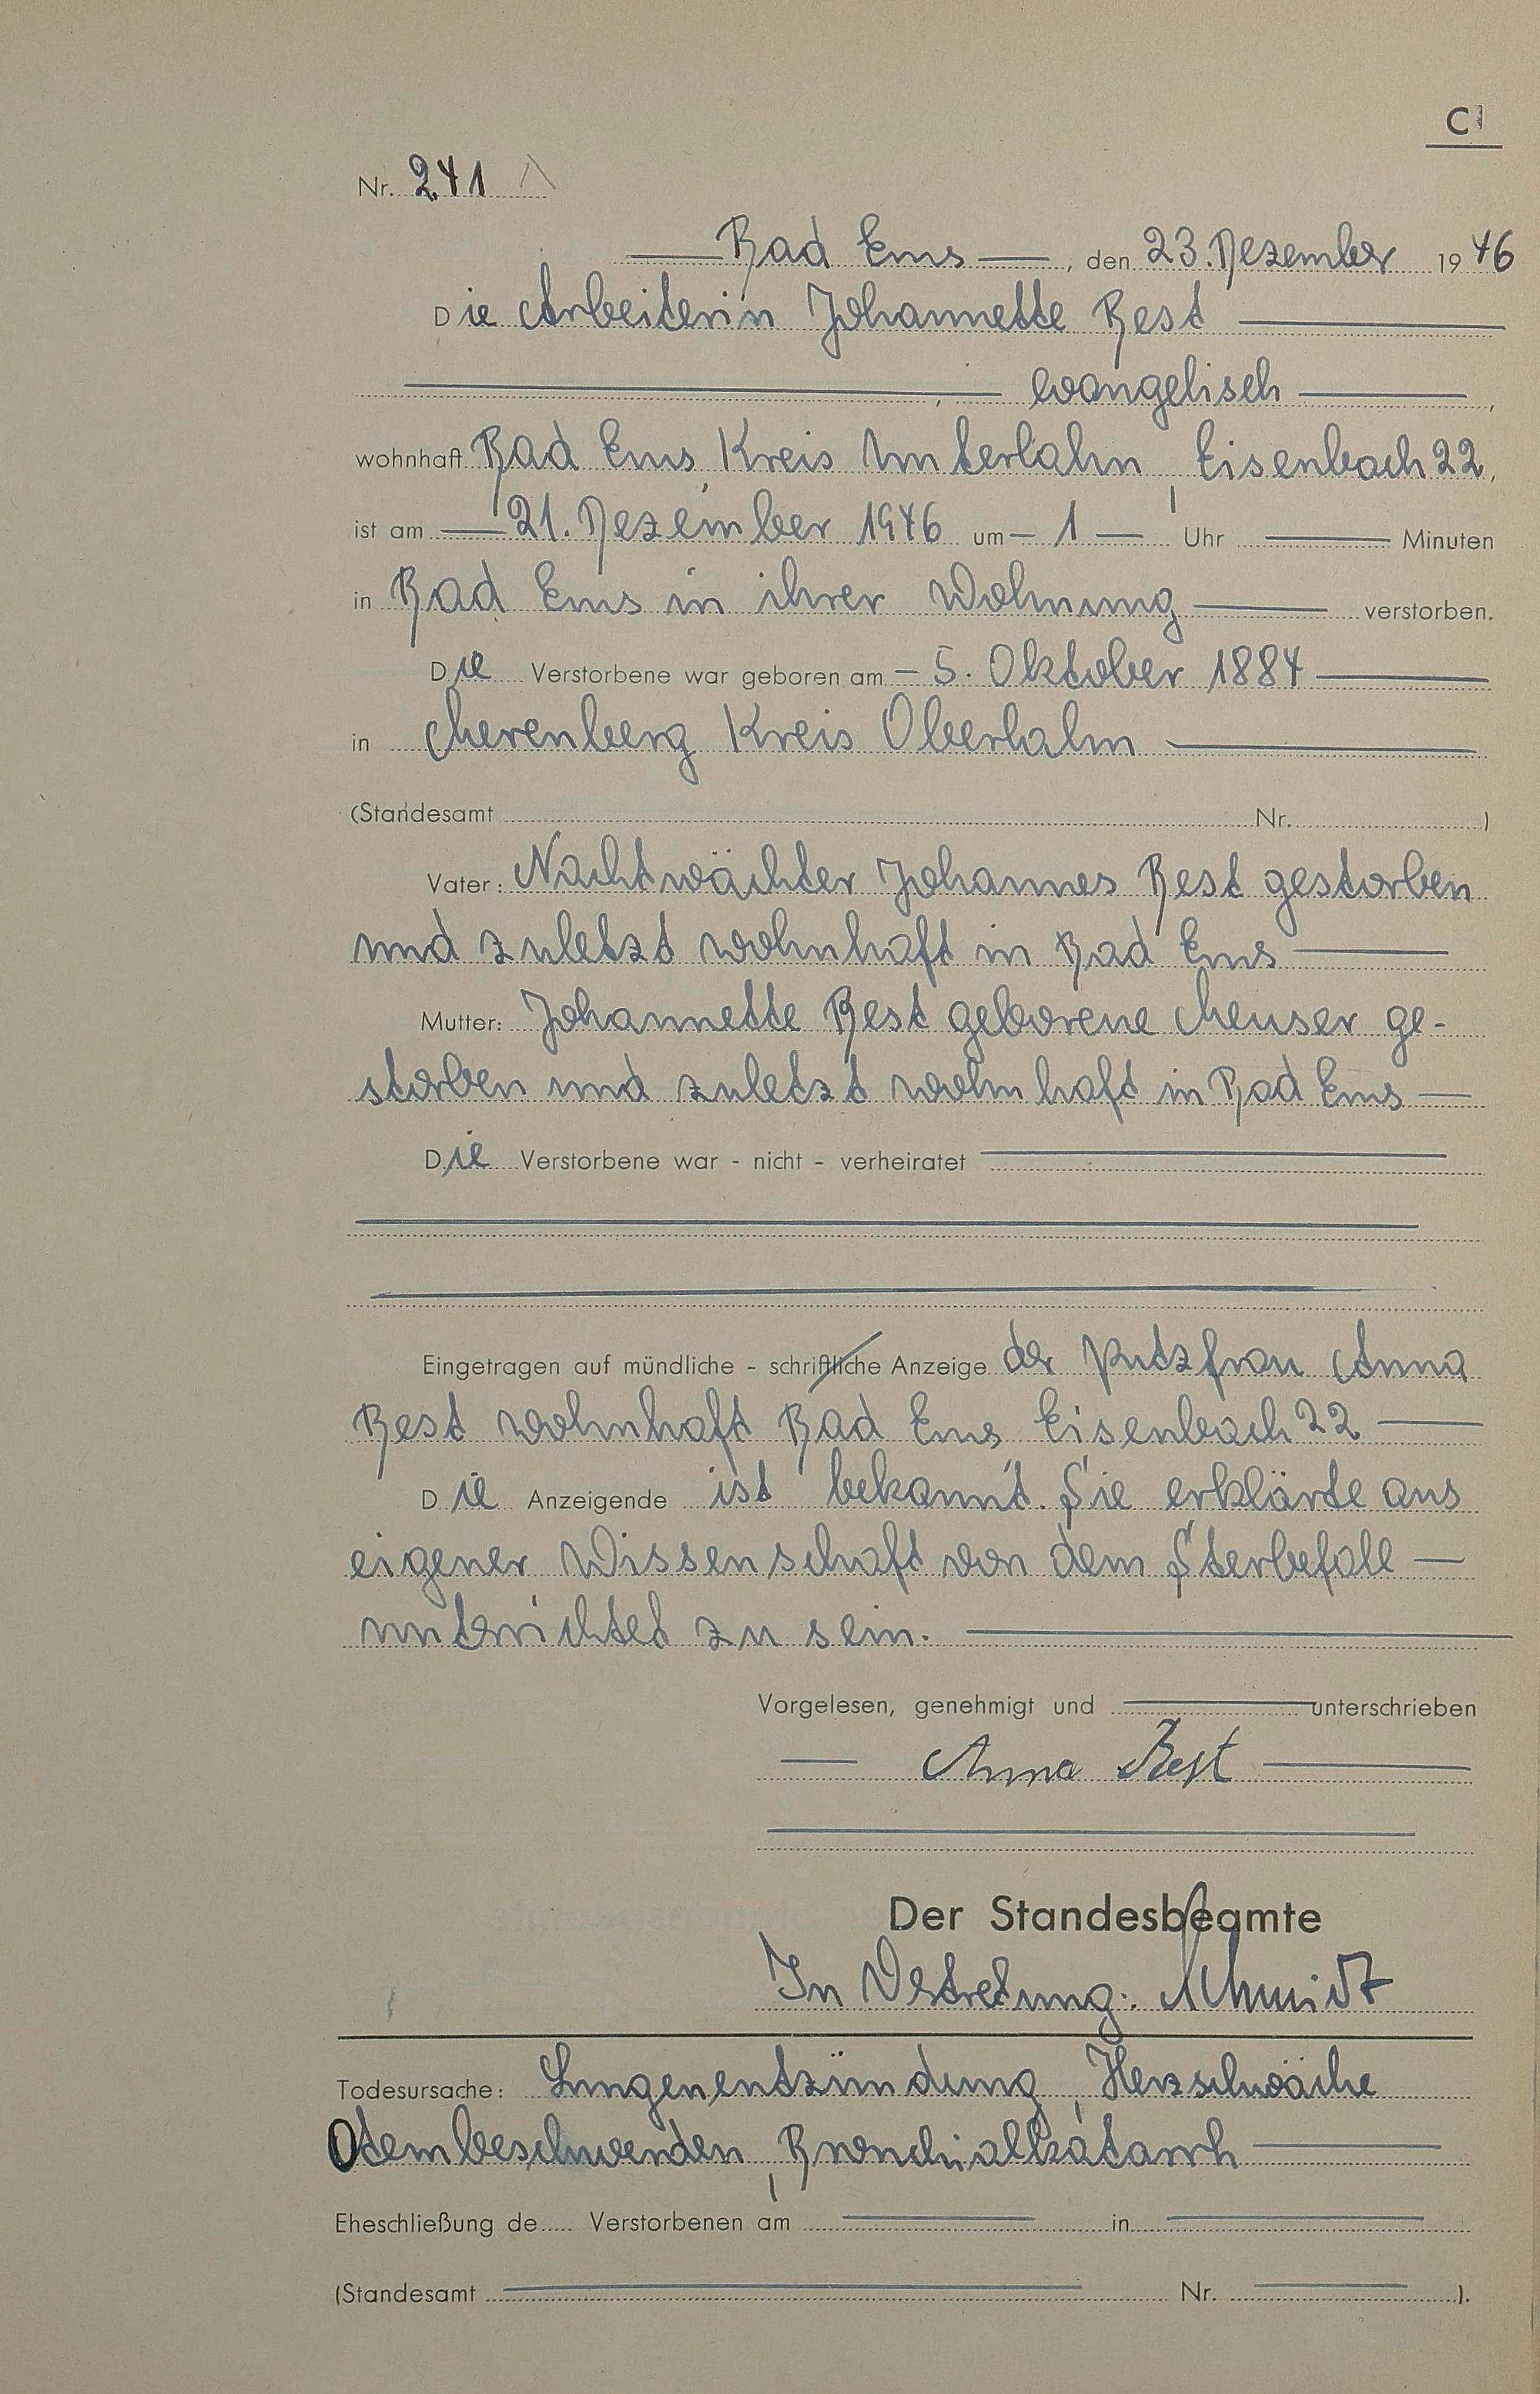 C
Nr. 241
Bad Ems, den 23. Dezember 1946
Die Arbeiterin Johannette Best
, evangelisch,
wohnhaft Bad Ems, Kreis Unterlahn, Eisenbach 22,
ist am 21. Dezember 1946 um 1 Uhr Minuten
in Bad Ems in ihrer Wohnung verstorben.
Die Verstorbene war geboren am 5. Oktober 1884
in Merenberg Kreis Oberlahn
(Standesamt Nr. )
Vater: Nachtwächter Johannes Best gestorben
und zuletzt wohnhaft in Bad Ems
Mutter: Johannette Best geborene Meuser ge-
storben und zuletzt wohnhaft in Bad Ems
Die Verstorbene war - nicht - verheiratet
Eingetragen auf mündliche - schriftliche Anzeige der Putzfrau Anna
Best wohnhaft Bad Ems, Eisenbach 22
Die Anzeigende ist bekannt. Sie erklärte aus
eigener Wissenschaft von dem Sterbefall
unterrichtet zu sein.
Vorgelesen, genehmigt und unterschrieben
Anna Best
Der Standesbeamte
In Vertretung: Schmidt
Todesursache: Lungenentzündung, Herzschwäche
Atembeschwerden, Bronchialkatarrh
Eheschließung de Verstorbenen am in
(Standesamt Nr. ).